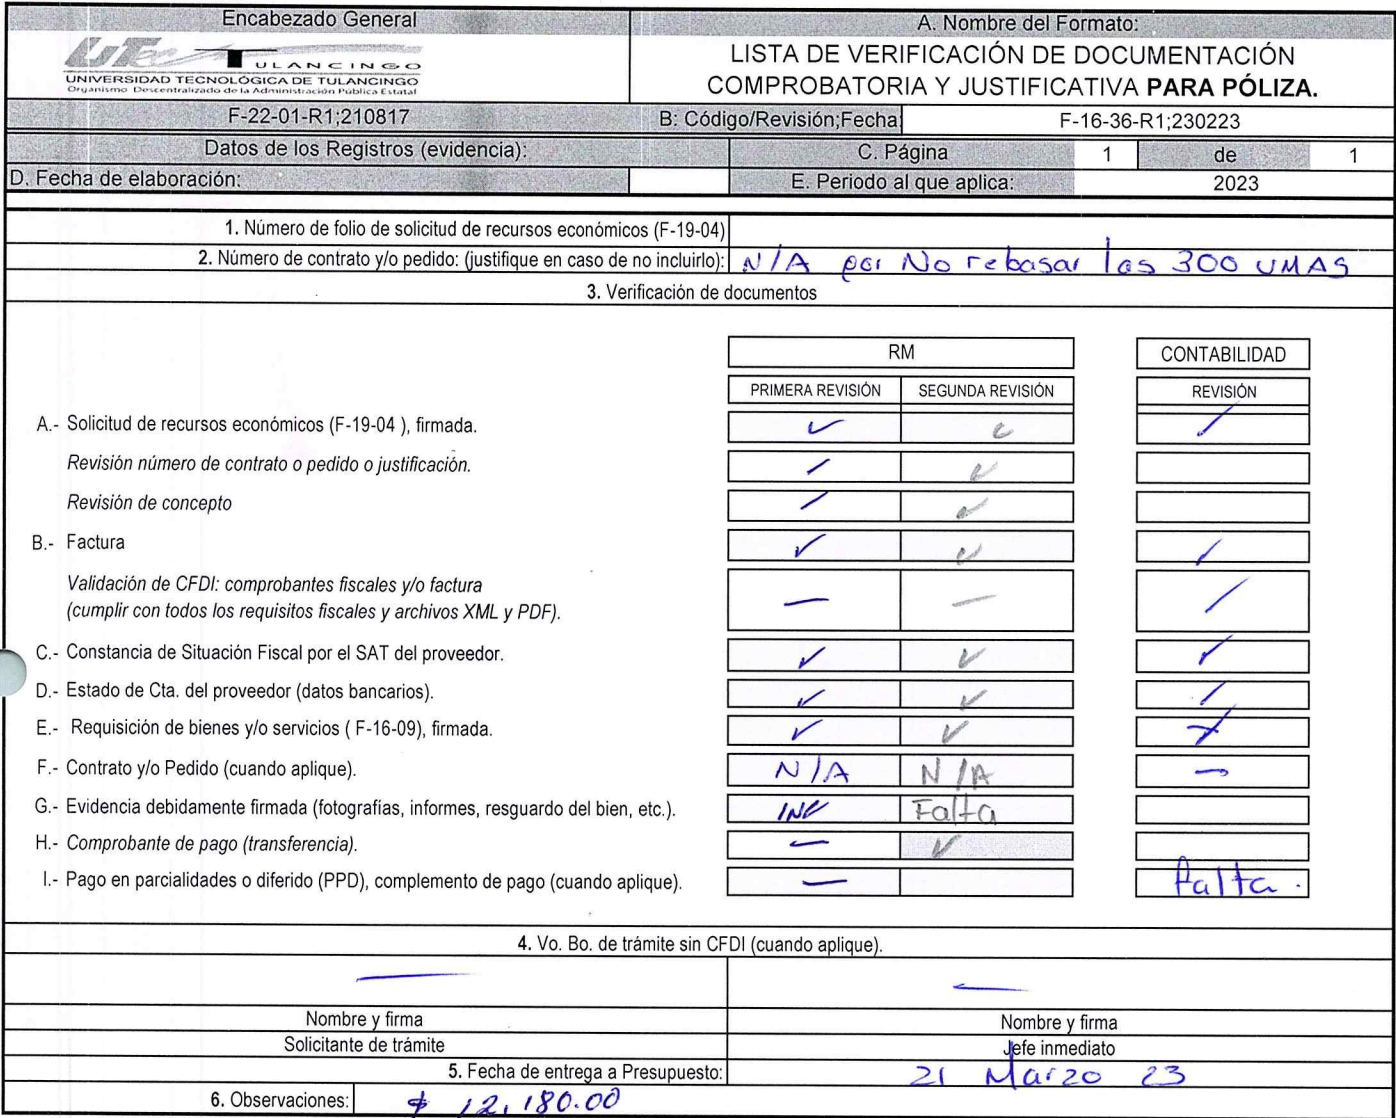 Encabezado General
A. Nombre del Formato:
UTec TULANCINGO
UNIVERSIDAD TECNOLÓGICA DE TULANCINGO
Organismo Descentralizado de la Administración Pública Estatal
LISTA DE VERIFICACIÓN DE DOCUMENTACIÓN
COMPROBATORIA Y JUSTIFICATIVA PARA PÓLIZA.
F-22-01-R1;210817
B: Código/Revisión;Fecha:
F-16-36-R1;230223
Datos de los Registros (evidencia):
C. Página 1 de 1
D. Fecha de elaboración:
E. Periodo al que aplica: 2023
1. Número de folio de solicitud de recursos económicos (F-19-04)
2. Número de contrato y/o pedido: (justifique en caso de no incluirlo): N/A por No rebasar las 300 UMAS
3. Verificación de documentos
RM CONTABILIDAD
PRIMERA REVISIÓN SEGUNDA REVISIÓN REVISIÓN
A.- Solicitud de recursos económicos (F-19-04 ), firmada.
Revisión número de contrato o pedido o justificación.
Revisión de concepto
B.- Factura
Validación de CFDI: comprobantes fiscales y/o factura
(cumplir con todos los requisitos fiscales y archivos XML y PDF).
C.- Constancia de Situación Fiscal por el SAT del proveedor.
D.- Estado de Cta. del proveedor (datos bancarios).
E.- Requisición de bienes y/o servicios ( F-16-09), firmada.
F.- Contrato y/o Pedido (cuando aplique). N/A N/A
G.- Evidencia debidamente firmada (fotografías, informes, resguardo del bien, etc.). Falta
H.- Comprobante de pago (transferencia).
I.- Pago en parcialidades o diferido (PPD), complemento de pago (cuando aplique). falta.
4. Vo. Bo. de trámite sin CFDI (cuando aplique).
Nombre y firma Nombre y firma
Solicitante de trámite Jefe inmediato
5. Fecha de entrega a Presupuesto: 21 Marzo 23
6. Observaciones: $ 12,180.00